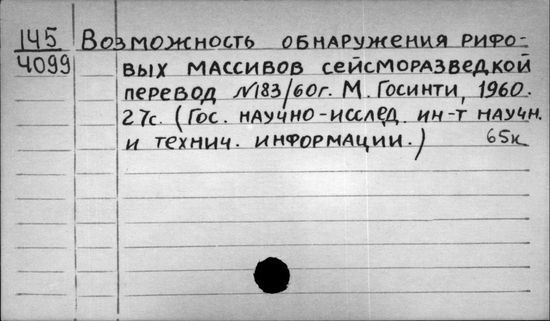 145 Возможность обнаружения рифо-
4099 вых массивов сейсморазведкой
перевод №183/60г. М. Госинти, 1960.
27с. (Гос. научно-исслед. ин-т научн.
и технич. информации.) 65к